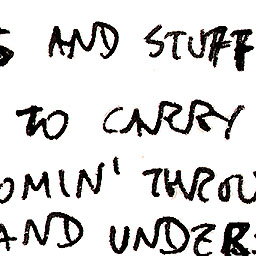 S AND STUFF
TO CARRY
OMIN' THROU
AND UNDER